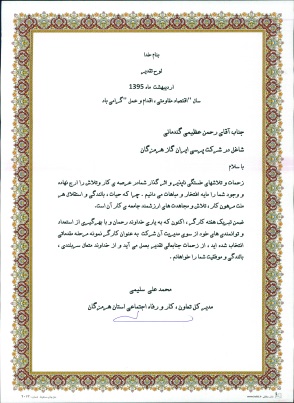 بنام خدا
لوح تقدیر
اردیبهشت ماه 1395
سال "اقتصاد مقاومتی ، اقدام و عمل" گرامی باد
جناب آقای رحمن عظیمی گندمانی
شاغل در شرکت پرسی ایران گاز هرمزگان
با سلام
زحمات و تلاشهای خستگی ناپذیر و اثر گذار شما در عرصه ی کار و تلاش را ارج نهاده
و وجود شما را مایه افتخار و مباهات می دانیم . چرا که حیات ، بالندگی و استقلال هر
ملت مرهون کار ، تلاش و مجاهدت های ارزشمند جامعه ی کار آن است.
ضمن تبریک هفته کارگر ، اکنون که به یاری خداوند رحمان و با بهره گیری از استعداد
و توانمندی های خود از سوی مدیریت آن شرکت به عنوان کارگر نمونه مرحله مقدماتی
انتخاب شده اید ، از زحمات جنابعالی تقدیر بعمل می آید و از خداوند متعال سربلندی ،
بالندگی و موفقیت شما را خواهانم .
محمد علی سلیمی
مدیر کل تعاون ، کار و رفاه اجتماعی استان هرمزگان